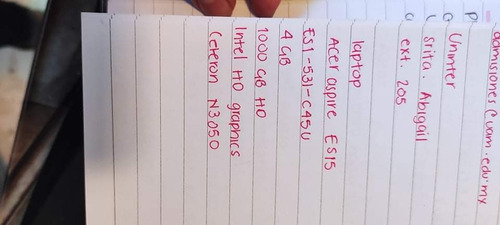 admisiones@uam.edu.mx
Uninter
Srita. Abigail
ext. 205
laptop
Acer aspire ES15
ES1-531-C45U
4 GB
1000 GB HD
Intel HD graphics
Celeron N3050